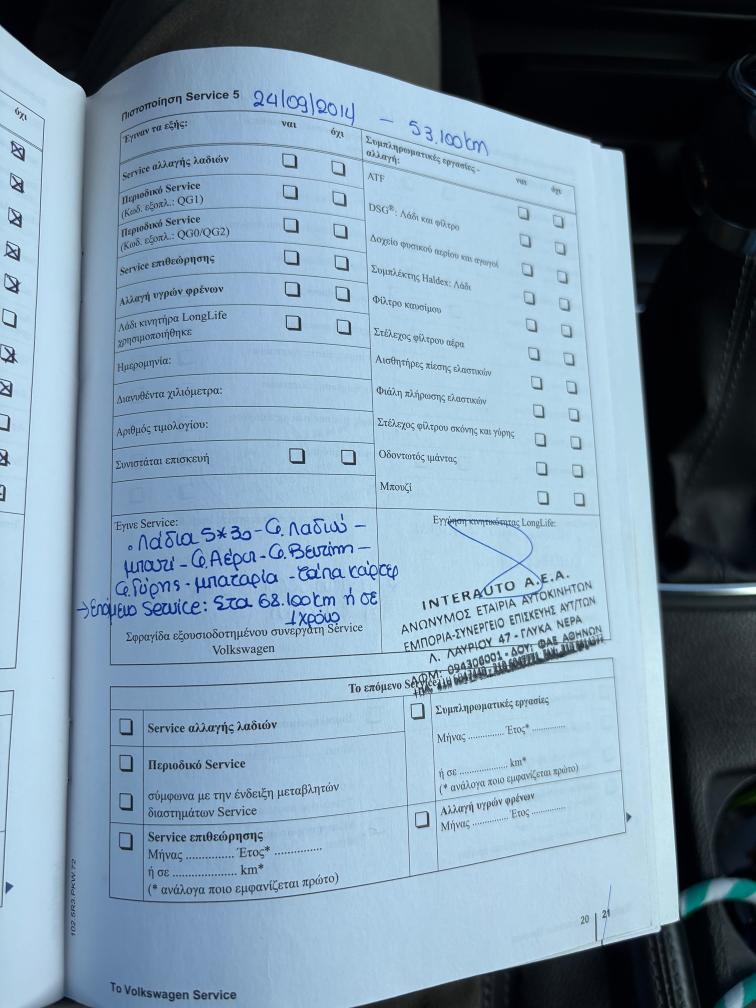 όχι
Πιστοποίηση Service 5 24/09/2014 - 53.100km
Έγιναν τα εξής: ναι όχι
Service αλλαγής λαδιών
Περιοδικό Service
(Κωδ. εξοπλ.: QG1)
Περιοδικό Service
(Κωδ. εξοπλ.: QG0/QG2)
Service επιθεώρησης
Αλλαγή υγρών φρένων
Λάδι κινητήρα LongLife
χρησιμοποιήθηκε
Ημερομηνία:
Διανυθέντα χιλιόμετρα:
Αριθμός τιμολογίου:
Συνιστάται επισκευή
Συμπληρωματικές εργασίες -
αλλαγή: ναι όχι
ATF
DSG®: Λάδι και φίλτρο
Δοχείο φυσικού αερίου και αγωγοί
Συμπλέκτης Haldex: Λάδι
Φίλτρο καυσίμου
Στέλεχος φίλτρου αέρα
Αισθητήρες πίεσης ελαστικών
Φιάλη πλήρωσης ελαστικών
Στέλεχος φίλτρου σκόνης και γύρης
Οδοντωτός ιμάντας
Μπουζί
Έγινε Service:
• Λάδια 5*30 - Φ. Λαδιού -
μπουζί - Φ. Αέρα - Φ. Βενζίνη -
Φ. Γύρης - μπαταρία - τάπα κάρτερ
→ Επόμενο Service: Στα 68.100km ή σε
1 χρόνο
Σφραγίδα εξουσιοδοτημένου συνεργάτη Service
Volkswagen
Εγγύηση κινητικότητας LongLife:
INTERAUTO A.E.A.
ΑΝΩΝΥΜΟΣ ΕΤΑΙΡΙΑ ΑΥΤΟΚΙΝΗΤΩΝ
ΕΜΠΟΡΙΑ-ΣΥΝΕΡΓΕΙΟ ΕΠΙΣΚΕΥΗΣ ΑΥΤ/ΤΩΝ
Λ. ΛΑΥΡΙΟΥ 47 - ΓΛΥΚΑ ΝΕΡΑ
ΑΦΜ: 094306001 - ΔΟΥ: ΦΑΕ ΑΘΗΝΩΝ
Το επόμενο Service
Service αλλαγής λαδιών
Περιοδικό Service
σύμφωνα με την ένδειξη μεταβλητών
διαστημάτων Service
Service επιθεώρησης
Μήνας ............... Έτος* ...............
ή σε .................... km*
(* ανάλογα ποιο εμφανίζεται πρώτο)
Συμπληρωματικές εργασίες
Μήνας ............ Έτος* ...............
ή σε ................. km*
(* ανάλογα ποιο εμφανίζεται πρώτο)
Αλλαγή υγρών φρένων
Μήνας ............ Έτος ...............
102.5R3.PKW.72
20 | 21
Το Volkswagen Service